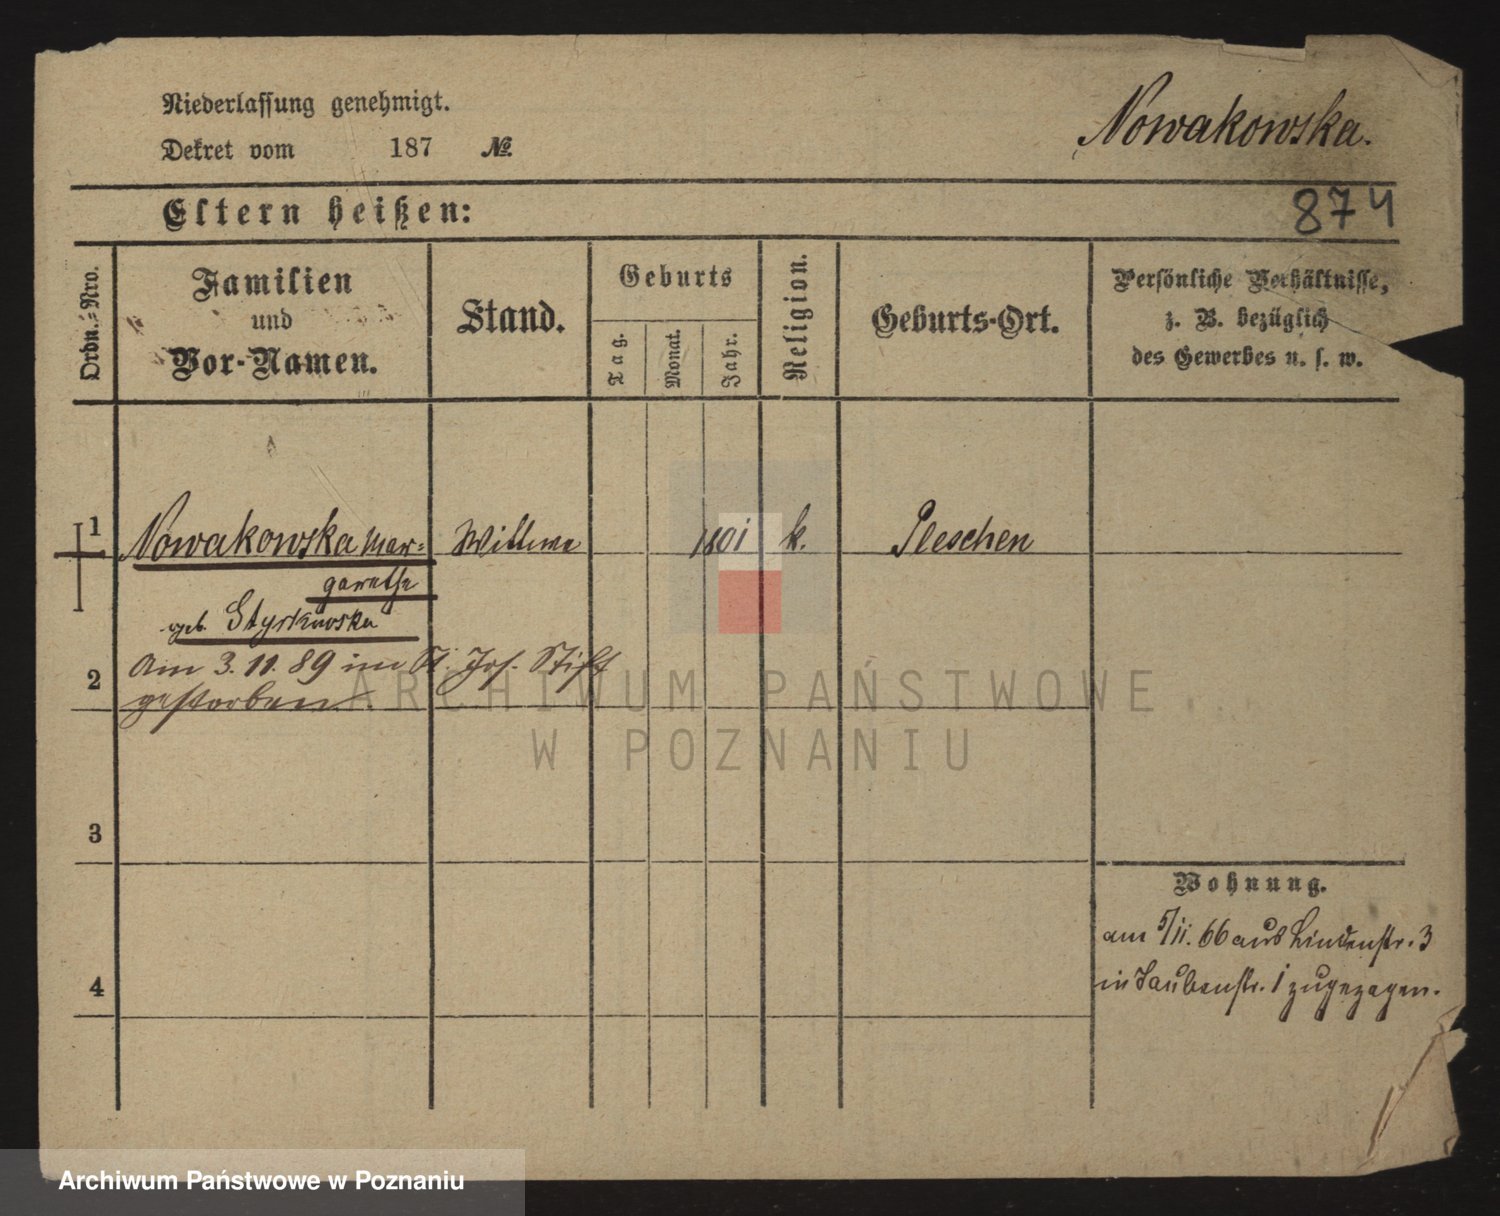 Niederlassung genehmigt.
Dekret vom 187 №.
Nowakowska.
Eltern heißen:
874
Ordn.-Nro.
Familien
und
Vor-Namen.
Stand.
Geburts
Tag.
Monat.
Jahr.
Religion.
Geburts-Ort.
Persönliche Verhältnisse,
z. B. bezüglich
des Gewerbes u. s. w.
1 Nowakowska Mar- Wittwe 1801 k. Pleschen
garethe
geb.
2 am 3.11.89 im St. Jos. Stift
gestorben
3
4
Wohnung.
am 5/11. 66 aus Lindenstr. 3
in Taubenstr. 1 zugezogen.
ARCHIWUM PAŃSTWOWE
W POZNANIU
Archiwum Państwowe w Poznaniu